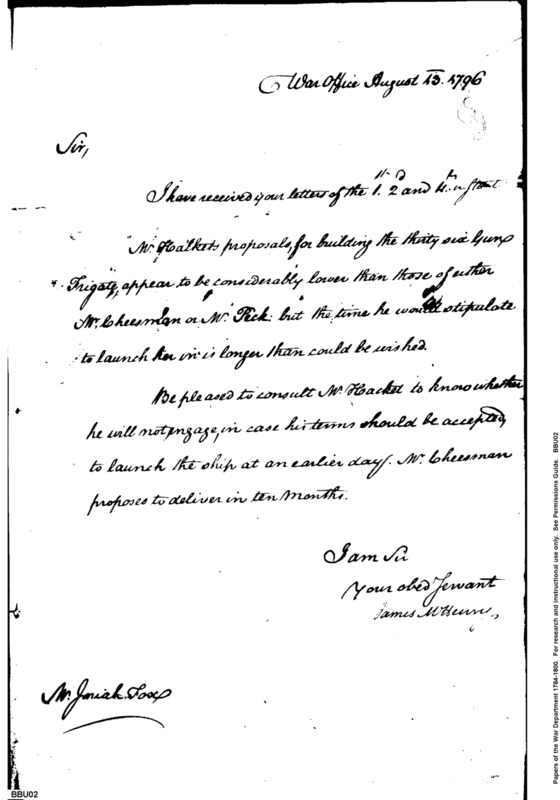 War Office August 13. 1796
Sir,
I have received your letters of the 1st. 2d and 4th instant
Mr. Halkets proposals, for building the thirty six Guns
Frigate, appear to be considerably lower than those of either
Mr. Cheesman or Mr. Peck: but the time he would stipulate
to launch her in is longer than could be wished.
Be pleased to consult Mr. Hacket to know whether
he will not engage, in case his terms should be accepted,
to launch the ship at an earlier day. Mr. Cheesman
proposes to deliver in ten Months.
I am Sir
Your obed Servant
James McHenry
Mr. Josiah Fox
BBU02
Papers of the War Department 1784-1800. For research and instructional use only. See Permissions Guide. BBU02